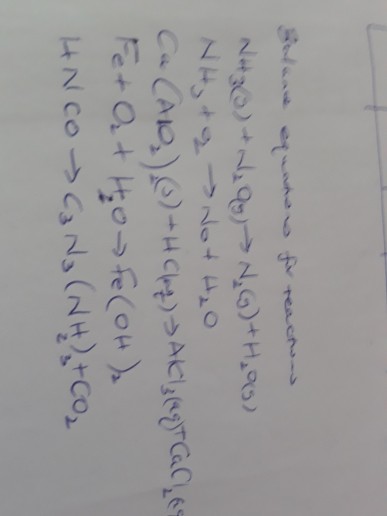 Balance equations for reactions
NH3(g) + N2O(g) → N2(g) + H2O(g)
NH3 + O2 → NO + H2O
Ca(AlO2)2(s) + HCl(aq) → AlCl3(aq) + CaCl2(aq
Fe + O2 + H2O → Fe(OH)2
HNCO → C3N3(NH2)3 + CO2